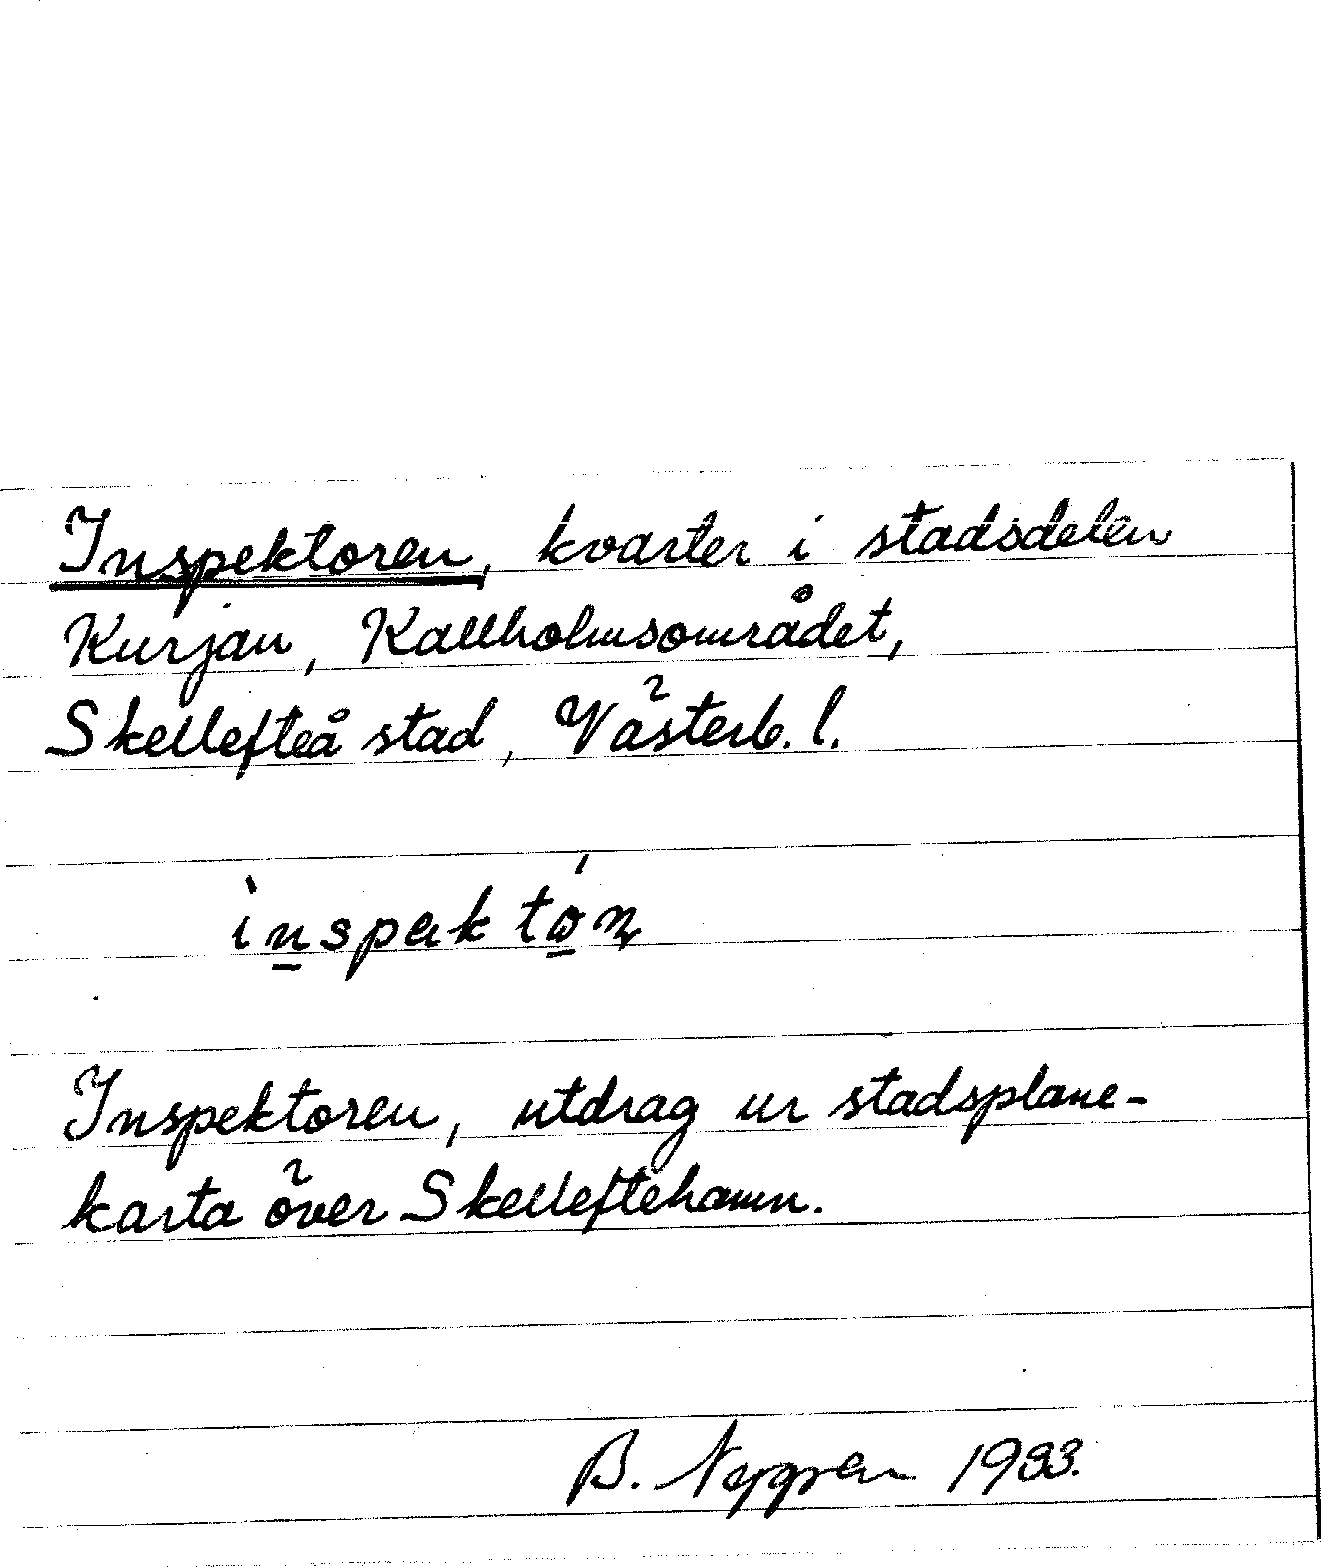 Inspektoren, kvarter i stadsdelen
Kurjan, Kallholmsområdet,
Skellefteå stad, Västerb. l.
Inspektoren, utdrag ur stadsplane-
karta över Skelleftehamn.
B. Nygren 1983.